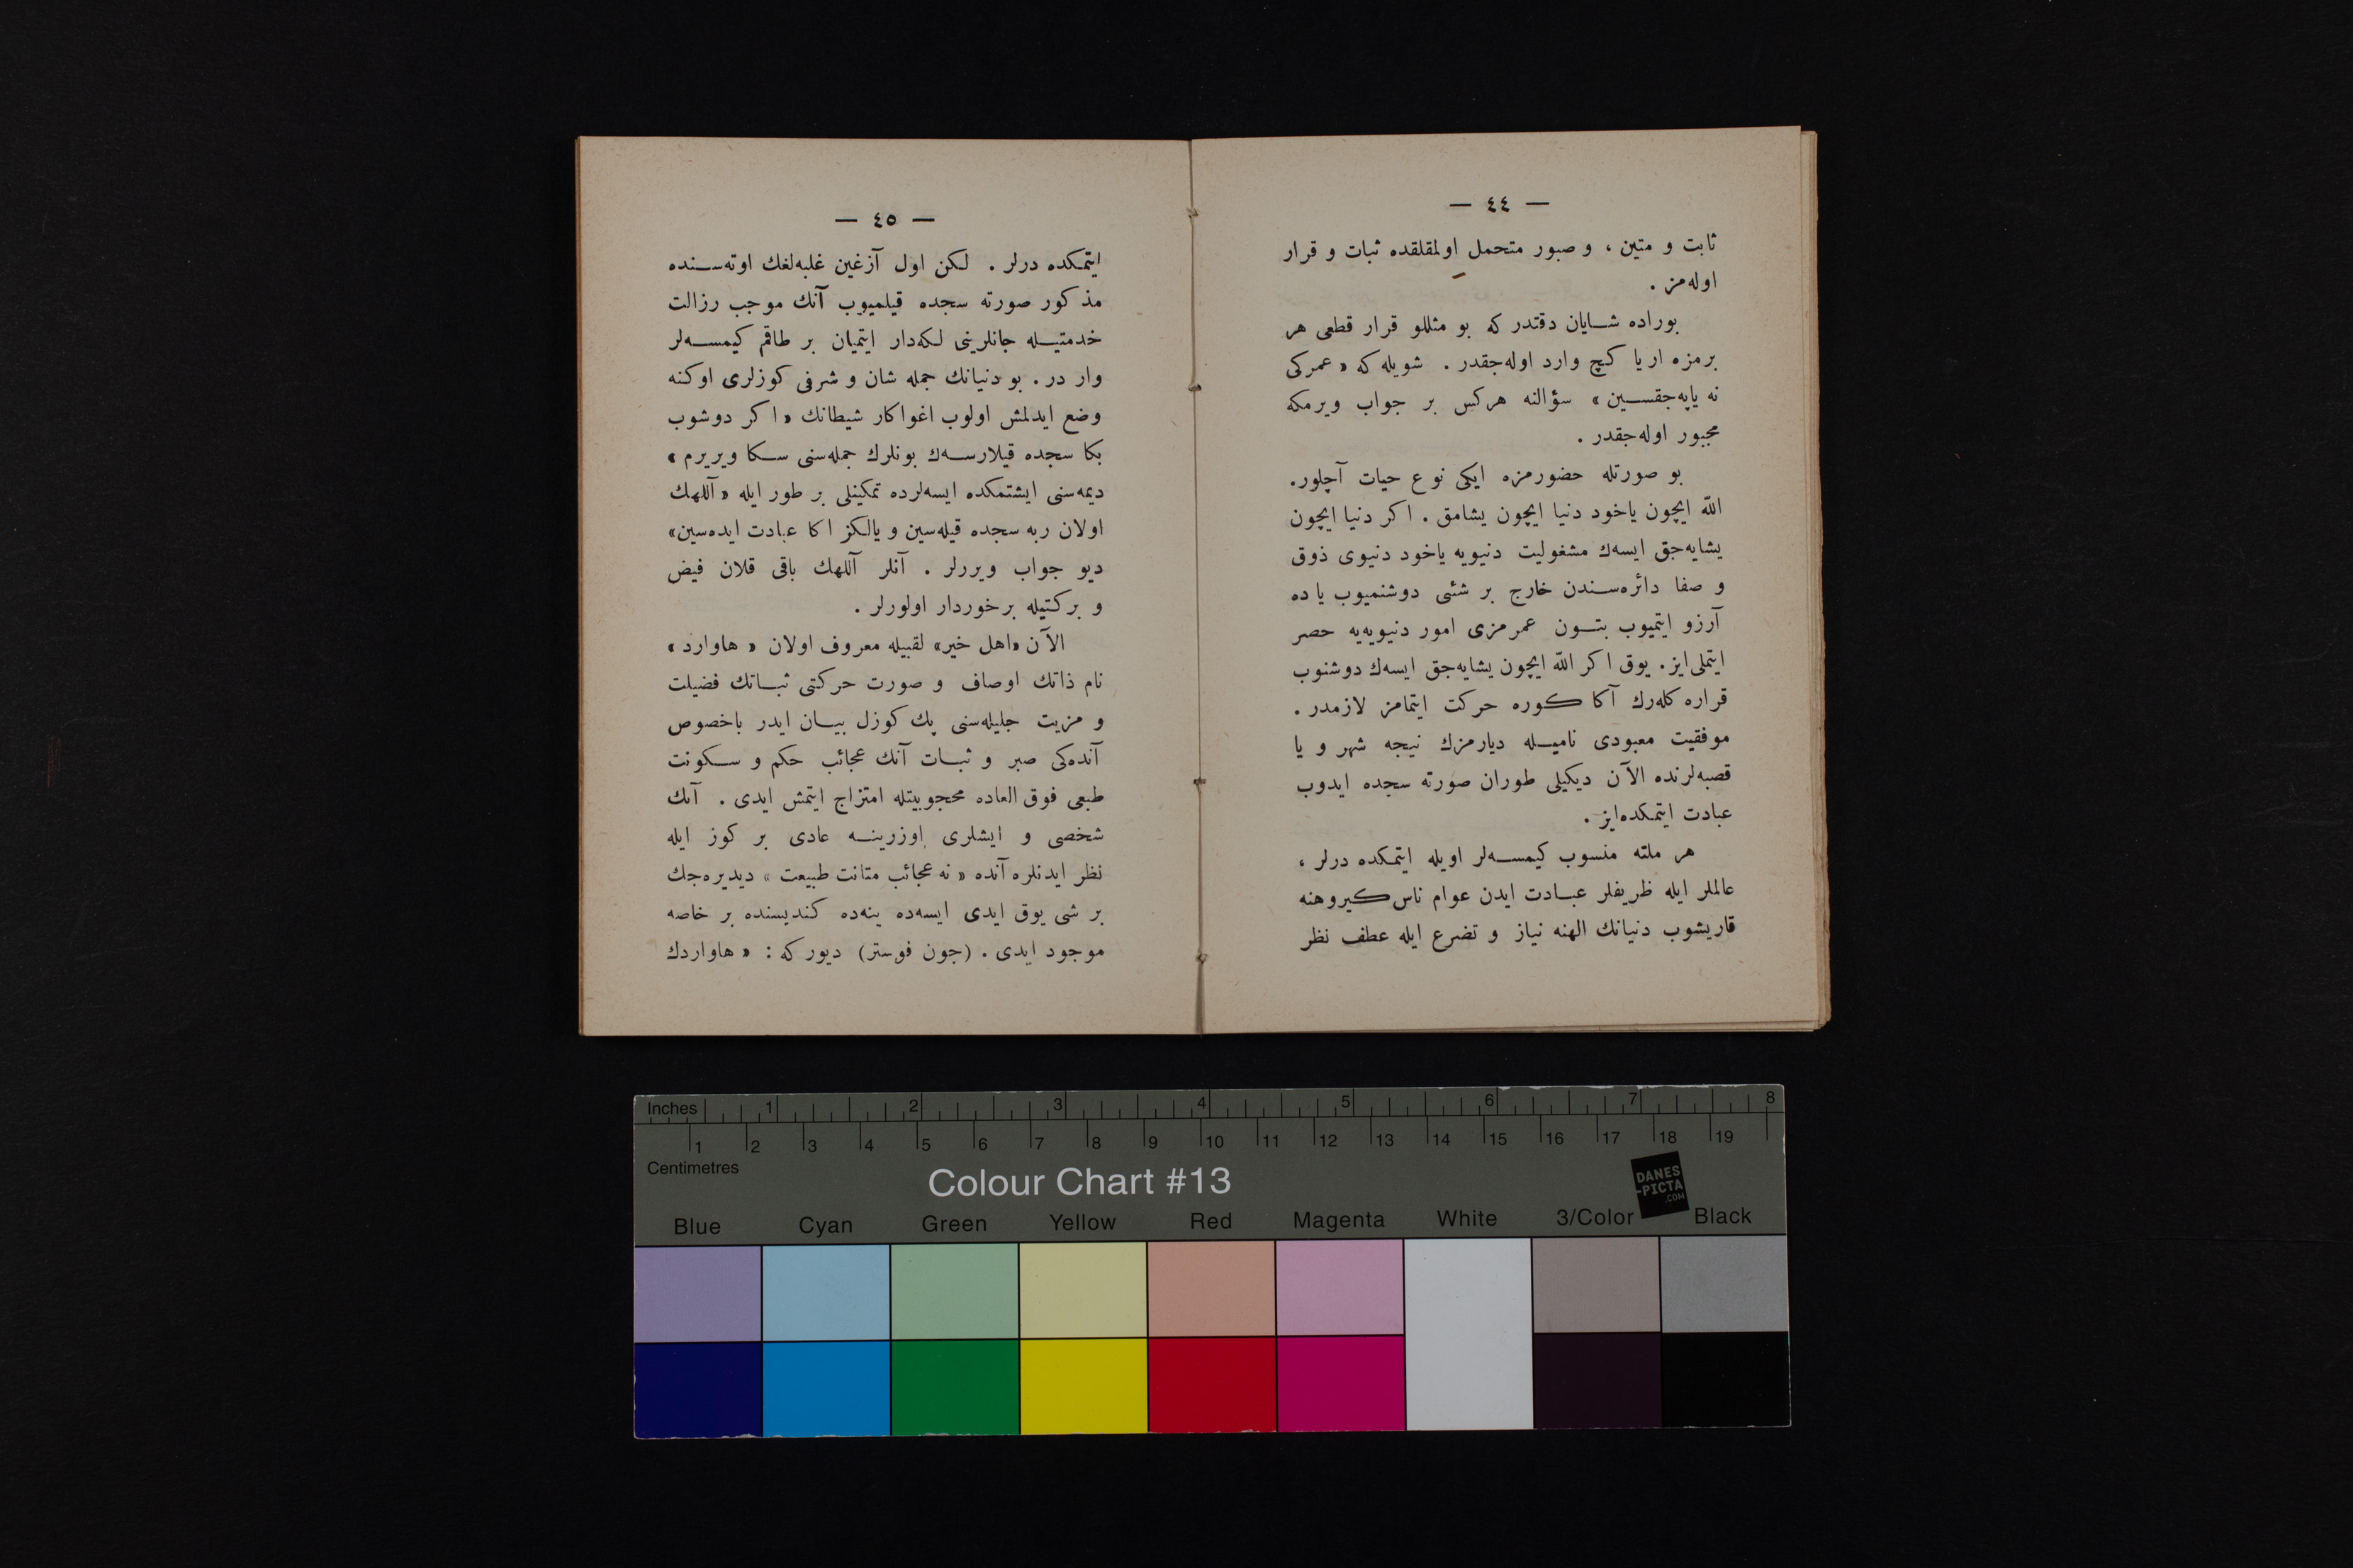 — ٤٤ —
ثابت و متین ، و صبور متحمل اولمقلقده ثبات و قرار
اوله‌مز .
بوراده شایان دقتدر که بو مثللو قرار قطعی هر
برمزه اریا کیچ وارد اوله‌جقدر . شویله که « عمرکی
نه یاپه‌جقسین » سؤالنه هرکس بر جواب ویرمکه
مجبور اوله‌جقدر .
بو صورتله حضورمزه ایکی نوع حیات آچلور.
الله ایچون یاخود دنیا ایچون یشامق . اکر دنیا ایچون
یشایه‌جق ایسه‌ك مشغولیت دنیویه یاخود دنیوی ذوق
و صفا دائره‌سندن خارج بر شئی دوشنمیوب یا ده
آرزو ایتمیوب بتون عمرمزی امور دنیویه‌یه حصر
ایتملی‌ایز . یوق اکر الله ایچون یشایه‌جق ایسه‌ك دوشنوب
قراره کله‌رك آکا کوره حرکت ایتمامز لازمدر .
موفقیت معبودی نامیله دیارمزك نیجه شهر و یا
قصبه‌لرنده الآن دیکیلی طوران صورته سجده ایدوب
عبادت ایتمکده‌ایز .
هر ملته منسوب کیمسه‌لر اویله ایتمکده درلر ،
عالملر ایله ظریفلر عبادت ایدن عوام ناس کیروهنه
قاریشوب دنیانك الهنه نیاز و تضرع ایله عطف نظر
— ٤٥ —
ایتمکده درلر . لکن اول آزغین غلبه‌لغك اوته‌سنده
مذکور صورته سجده قیلمیوب آنك موجب رزالت
خدمتیله جانلرینی لکه‌دار ایتمیان بر طاقم کیمسه‌لر
وار در . بو دنیانك جمله شان و شرفی کوزلری اوکنه
وضع ایدلمش اولوب اغواکار شیطانك « اکر دوشوب
بکا سجده قیلارسه‌ك بونلرك جمله‌سنی سکا ویریرم »
دیمه‌سنی ایشتمکده ایسه‌لرده تمکینلی بر طور ایله « آللهك
اولان ربه سجده قیله‌سین و یالکز اکا عبادت ایده‌سین»
دیو جواب ویررلر . آنلر آللهك باقی قلان فیض
و برکتیله برخوردار اولورلر .
الآن «اهل خیر» لقبیله معروف اولان « هاوارد »
نام ذاتك اوصاف و صورت حرکتی ثباتك فضیلت
و مزیت جلیله‌سنی پك کوزل بیان ایدر باخصوص
آنده‌کی صبر و ثبات آنك عجائب حکم و سکونت
طبعی فوق العاده محجوبیتله امتزاج ایتمش ایدی . آنك
شخصی و ایشلری اوزرینه عادی بر کوز ایله
نظر ایدنلره آنده « نه عجائب متانت طبیعت » دیدیره‌جك
بر شی یوق ایدی ایسه‌ده ینه‌ده کندیسنده بر خاصه
موجود ایدی . (جون فوستر) دیورکه : « هاواردك
Inches 1 2 3 4 5 6 7 8
1 2 3 4 5 6 7 8 9 10 11 12 13 14 15 16 17 18 19
Centimetres
Colour Chart #13
DANES
-PICTA
.COM
Blue Cyan Green Yellow Red Magenta White 3/Color Black